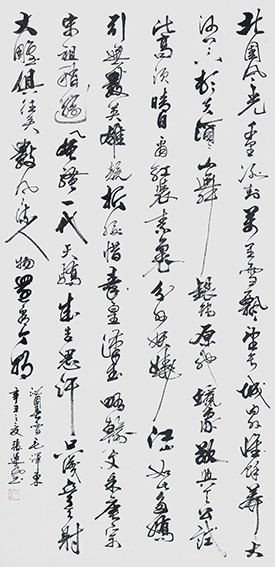 北國風光千里冰封萬里雪飄望長城內外惟餘莽莽大
河上下頓失滔滔山舞銀蛇原馳蠟象欲與天公試
比高須晴日看紅裝素裹分外妖嬈江山如此多嬌
引無數英雄競折腰惜秦皇漢武略輸文采唐宗
宋祖稍遜風騷一代天驕成吉思汗只識彎弓射
大鵰俱往矣數風流人物還看今朝
沁園春雪毛澤東
辛丑之夏張